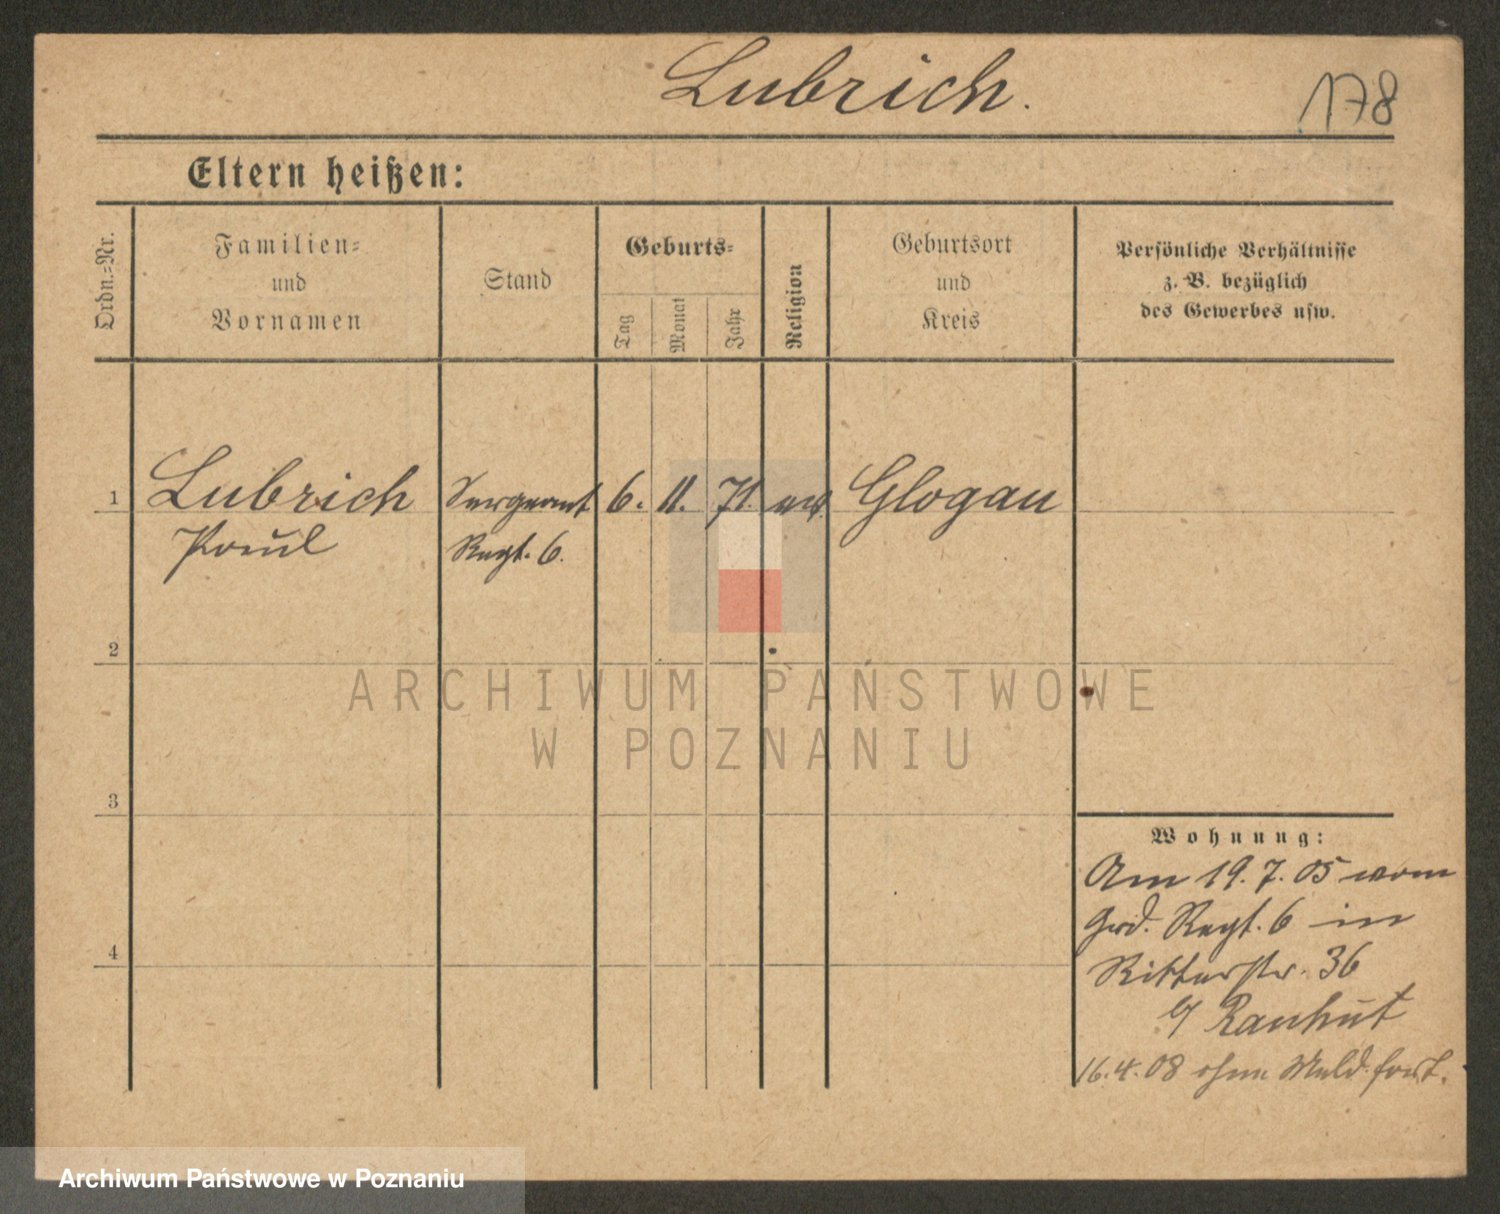 Lubrich.
178
Eltern heißen:
Ordn.=Nr.
Familien=
und
Vornamen
Stand
Geburts=
Tag
Monat
Jahr
Religion
Geburtsort
und
Kreis
Persönliche Verhältnisse
z. B. bezüglich
des Gewerbes usw.
1 Lubrich Sergeant 6. 11. 71. Glogau
Paul Regt. 6.
2
ARCHIWUM PAŃSTWOWE
W POZNANIU
3
Wohnung:
Am 19. 7. 05 vom
Grd. Regt. 6 in
Ritterstr. 36
Rauhut
16. 4. 08 ohne Meld. fort.
4
Archiwum Państwowe w Poznaniu